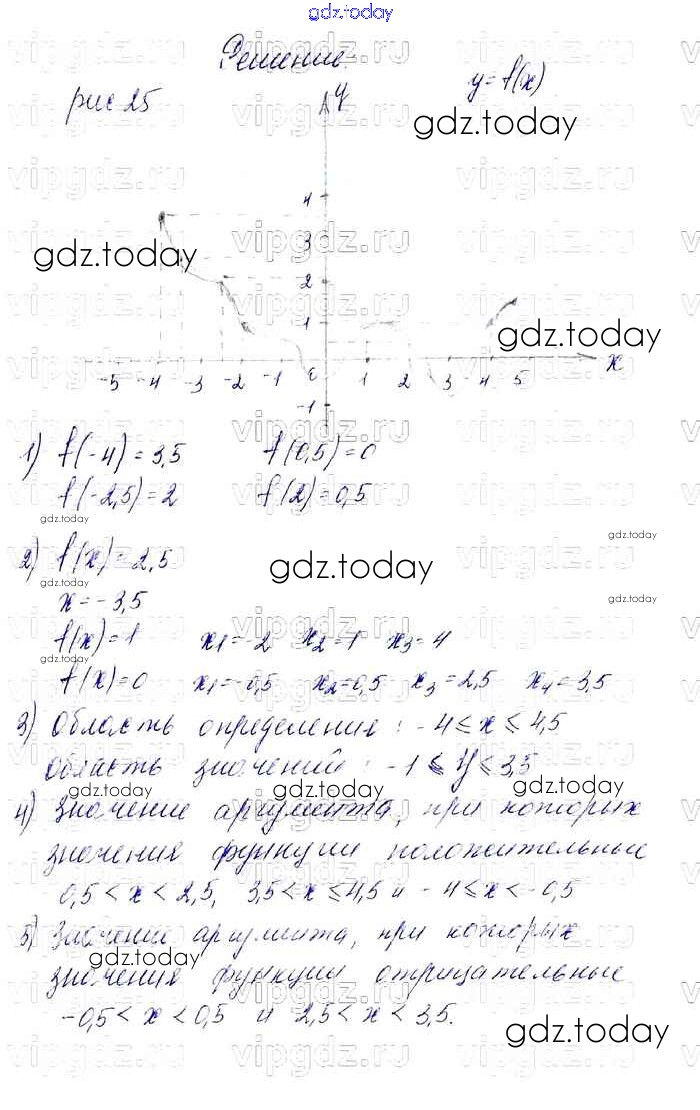 gdz.today
Решение.
рис 25 y = f(x)
y
gdz.today
4
vipgdz.ru
3
gdz.today
2
1
gdz.today
-5 -4 -3 -2 -1 0 1 2 3 4 5 x
-1
1) f(-4) = 3,5 f(0,5) = 0
f(-2,5) = 2 f(2) = 0,5
gdz.today
gdz.today
2) f(x) = 2,5
gdz.today
gdz.today
x = -3,5
gdz.today
f(x) = 1 x1 = -2 x2 = 1 x3 = 4
gdz.today
f(x) = 0 x1 = -0,5 x2 = 0,5 x3 = 2,5 x4 = 3,5
3) Область определения : -4 ≤ x ≤ 4,5
область значений : -1 ≤ y ≤ 3,5
gdz.today gdz.today gdz.today
4) Значение аргумента, при которых
значения функции положительные
0,5 < x < 2,5, 3,5 < x ≤ 4,5 и -4 ≤ x < -0,5
5) Значение аргумента, при которых
gdz.today
значения функции отрицательные
-0,5 < x < 0,5 и 2,5 < x < 3,5.
gdz.today